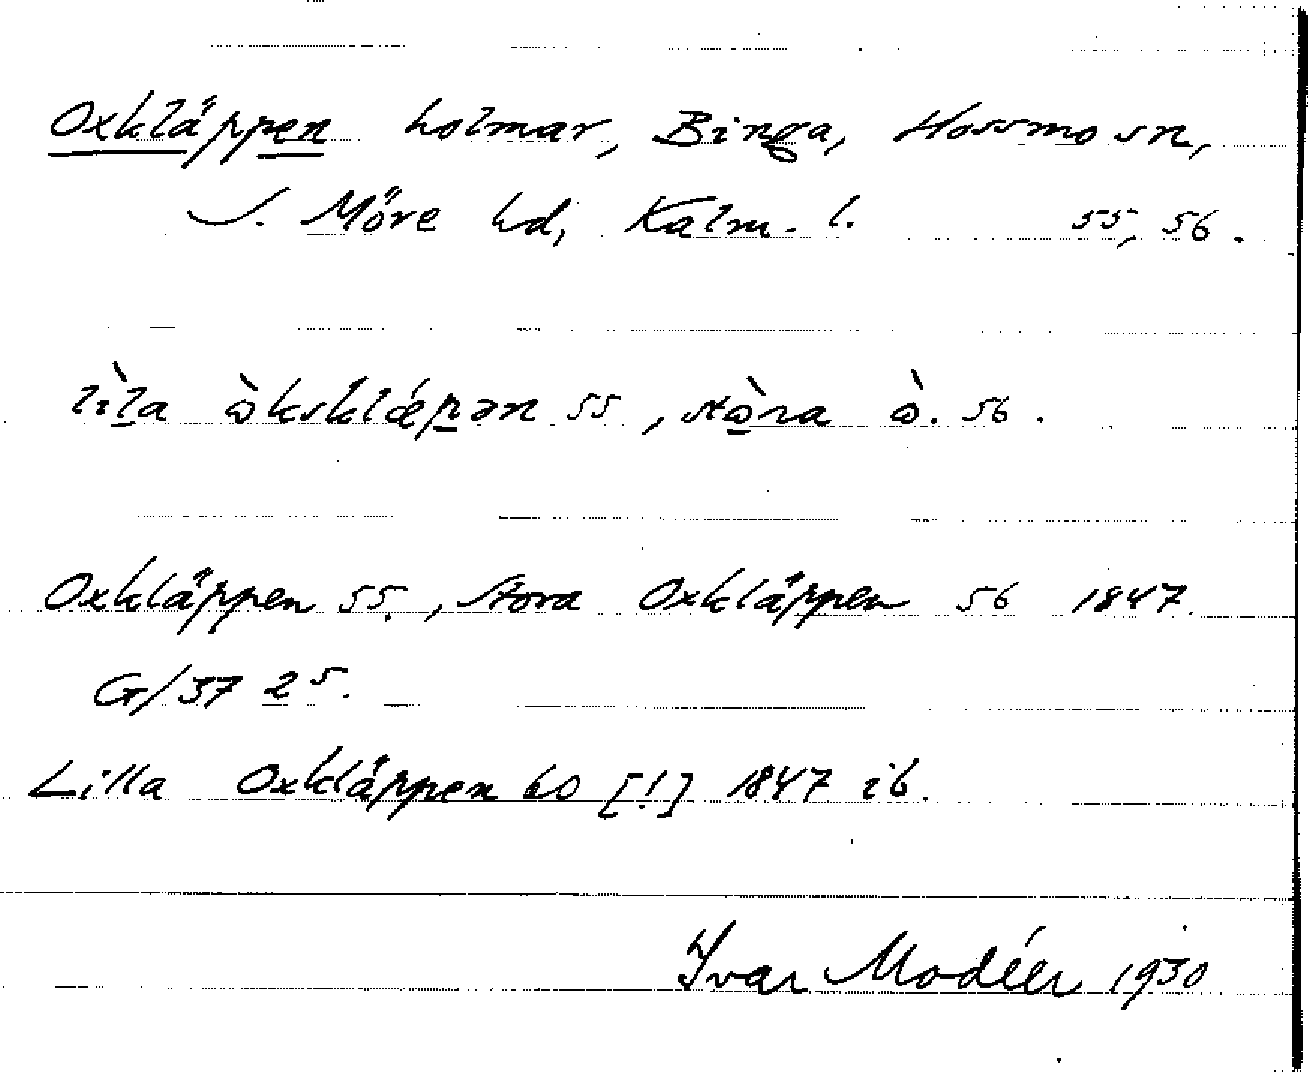 Oxkläppen holmar, Binga, Hossmo sn,
S. Möre hd, Kalm. l. 55, 56.
lìla òksklæpən 55, stòra ò. 56.
Oxkläppen 55, Stora Oxkläppen 56 1847
G/37 25.
Lilla Oxkläppen 60 [!] 1847 ib.
Ivar Modéer 1930